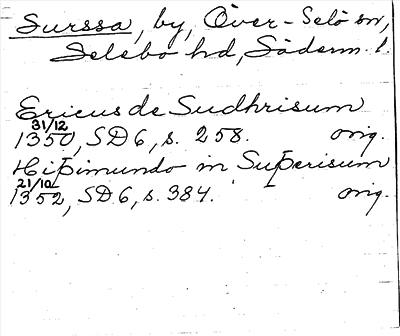 Surssa, by, Över-Selö sn,
Selebo hd, Söderm. l.
Ericus de Sudhrisum
31/12
1350, SD 6, s. 258. orig.
Hiþimundo in Suþerisum
21/10
1352, SD 6, s. 384. orig.